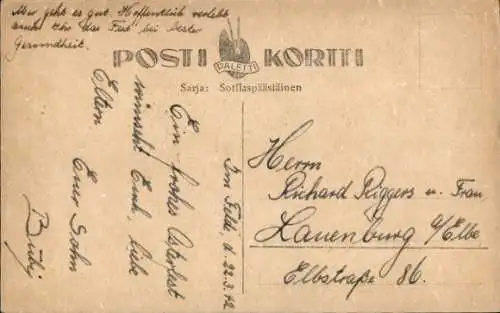 Mir geht es gut. Hoffentlich verlebt
auch Ihr das Fest bei bester
Gesundheit.
POSTI KORTTI
PALETTI
Sarja: Sotilaspäästäinen
Im Felde, d. 22.3.42
Ein frohes Osterfest
wünscht Euch, liebe
Eltern
Euer Sohn
Herrn
Richard Riggers u. Frau
Lauenburg a/Elbe
Elbstraße 86.